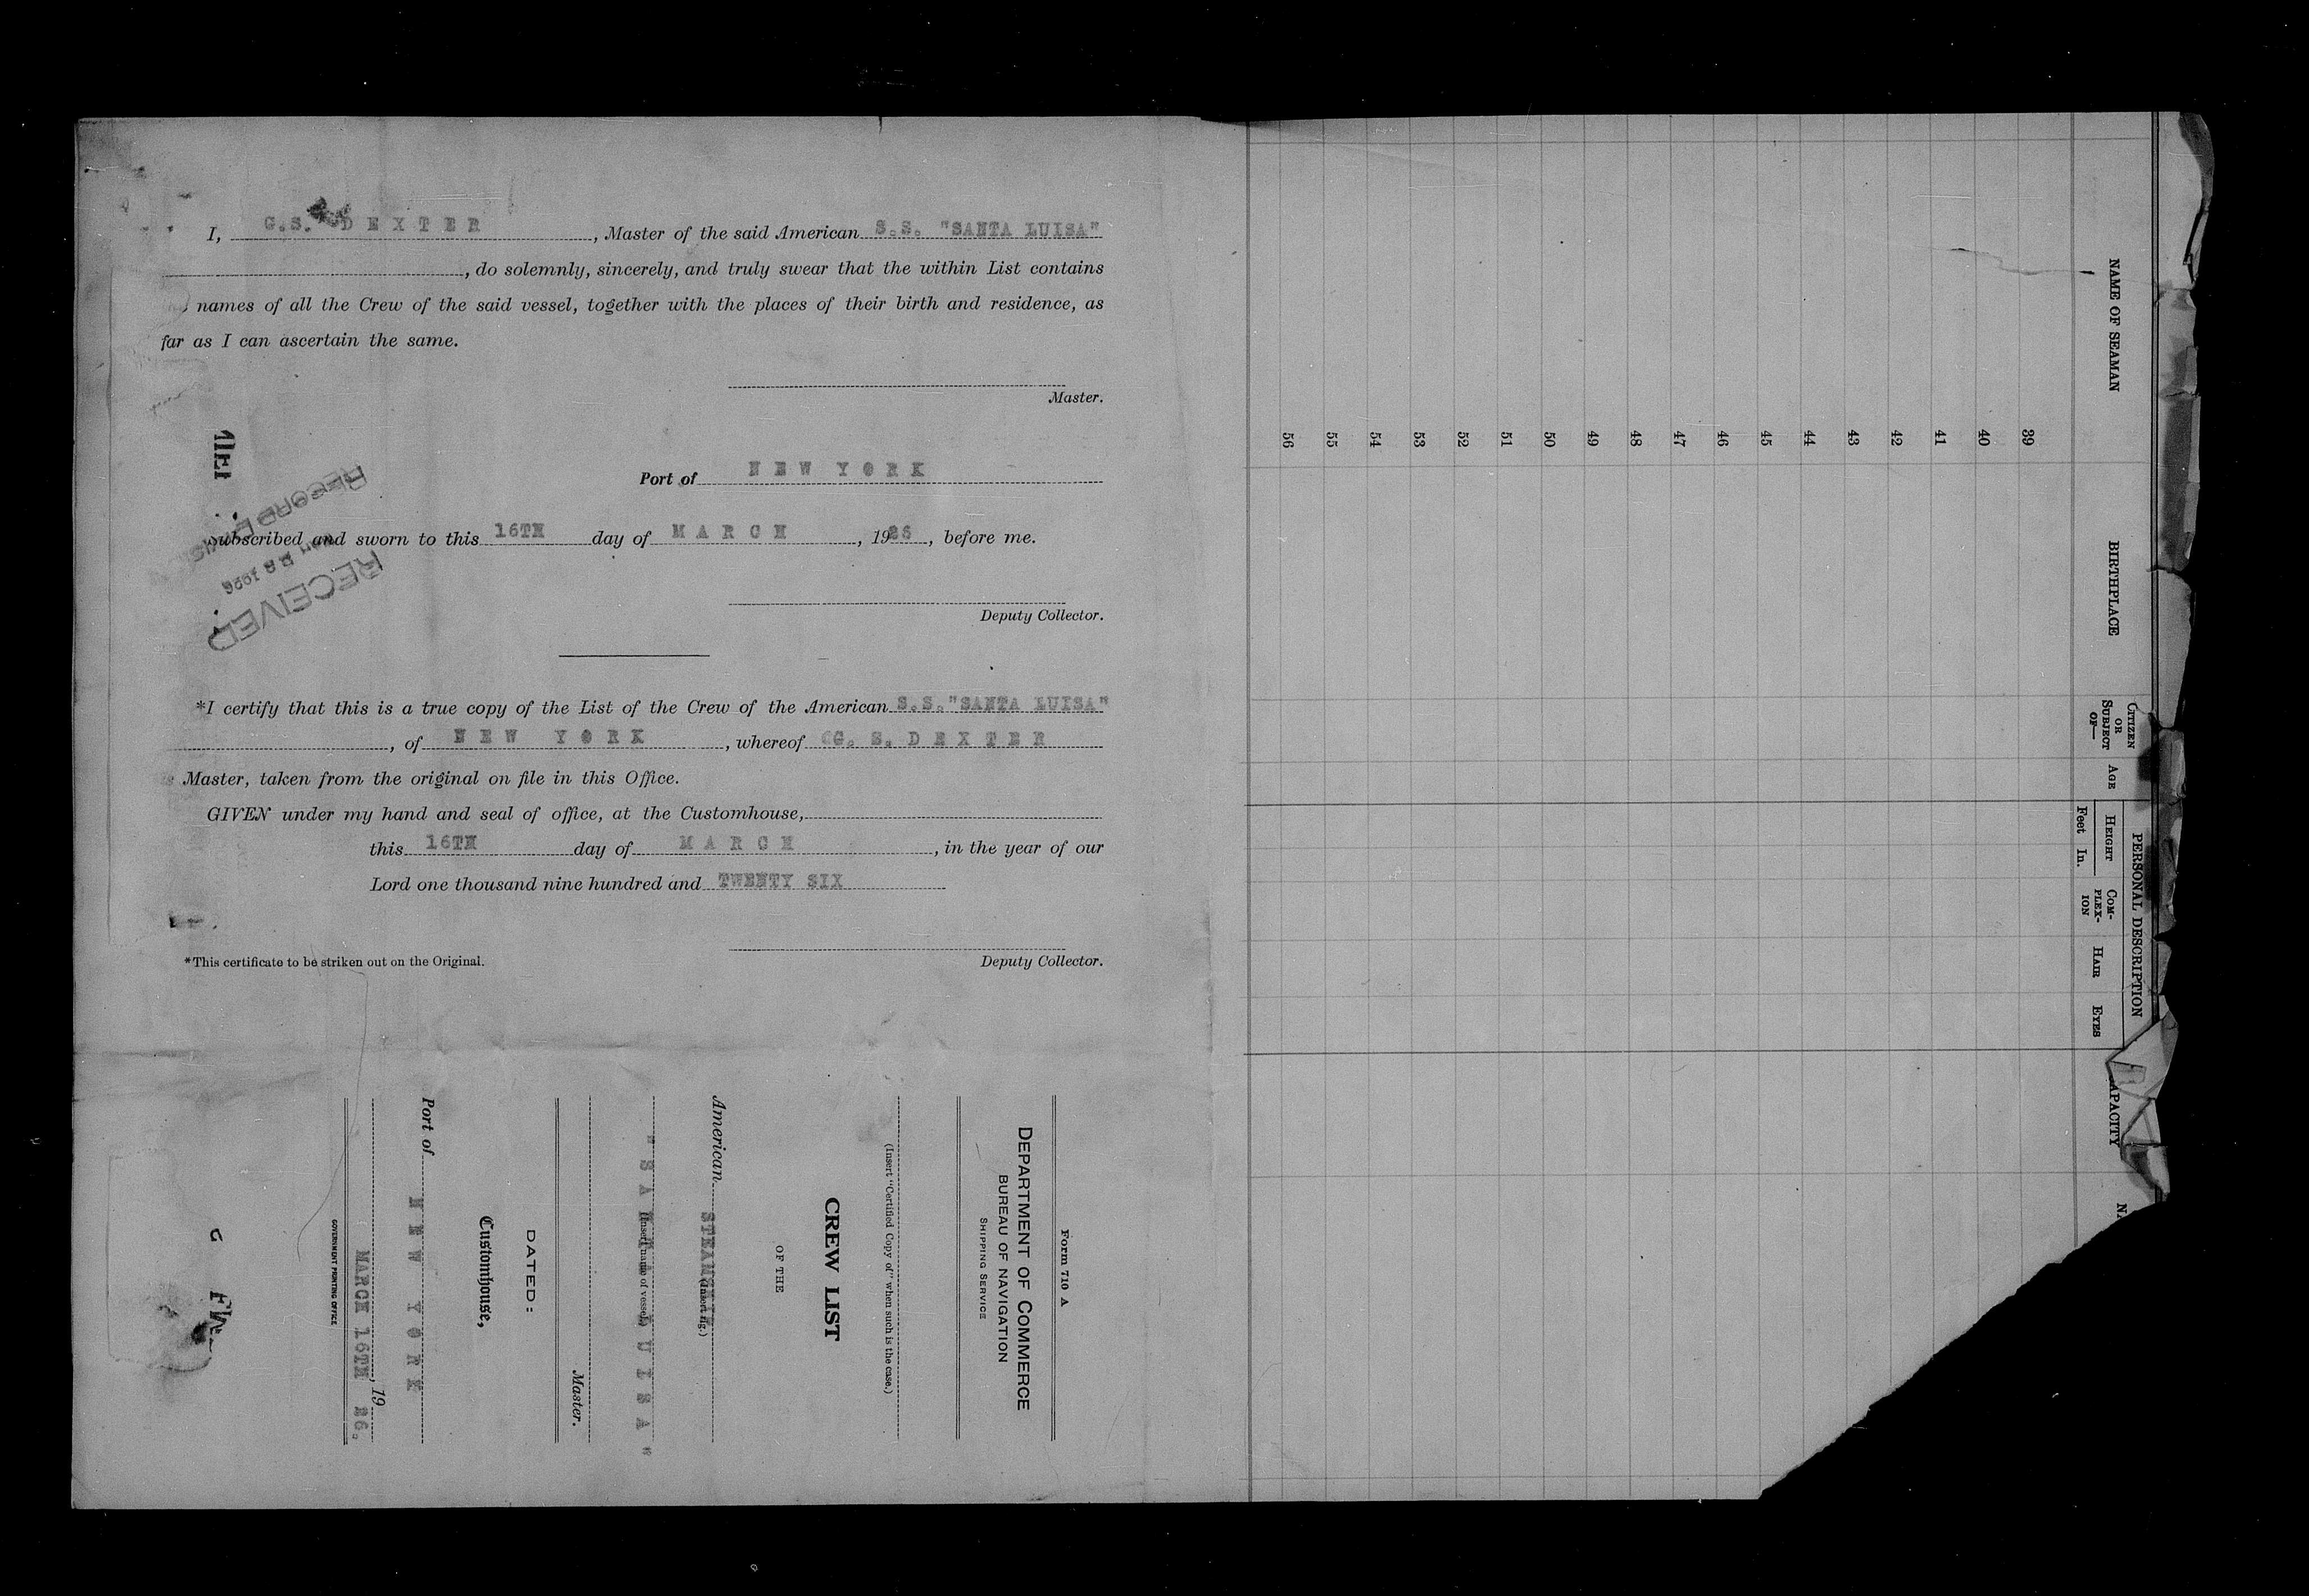 I, G.S. DEXTER, Master of the said American S.S. "SANTA LUISA"
, do solemnly, sincerely, and truly swear that the within List contains
names of all the Crew of the said vessel, together with the places of their birth and residence, as
far as I can ascertain the same.
Master.
Port of NEW YORK
Subscribed and sworn to this 16TH day of MARCH, 1926, before me.
Deputy Collector.
RECEIVED
1926
RECORD
*I certify that this is a true copy of the List of the Crew of the American S.S. "SANTA LUISA"
, of NEW YORK, whereof G. S. DEXTER
Master, taken from the original on file in this Office.
GIVEN under my hand and seal of office, at the Customhouse,
this 16TH day of MARCH, in the year of our
Lord one thousand nine hundred and TWENTY SIX
Deputy Collector.
*This certificate to be striken out on the Original.
Form 710 A
DEPARTMENT OF COMMERCE
BUREAU OF NAVIGATION
SHIPPING SERVICE
(Insert "Certified Copy of" when such is the case.)
CREW LIST
OF THE
American STEAMSHIP
(Insert rig.)
"SANTA LUISA"
(Insert name of vessel.)
Master.
DATED:
Customhouse,
Port of NEW YORK
MARCH 16TH, 19 26.
GOVERNMENT PRINTING OFFICE
NAME OF SEAMAN
BIRTHPLACE
CITIZEN OR SUBJECT OF—
AGE
PERSONAL DESCRIPTION
HEIGHT
Feet In.
COM-PLEX-ION
HAIR
EYES
APACITY
39
40
41
42
43
44
45
46
47
48
49
50
51
52
53
54
55
56